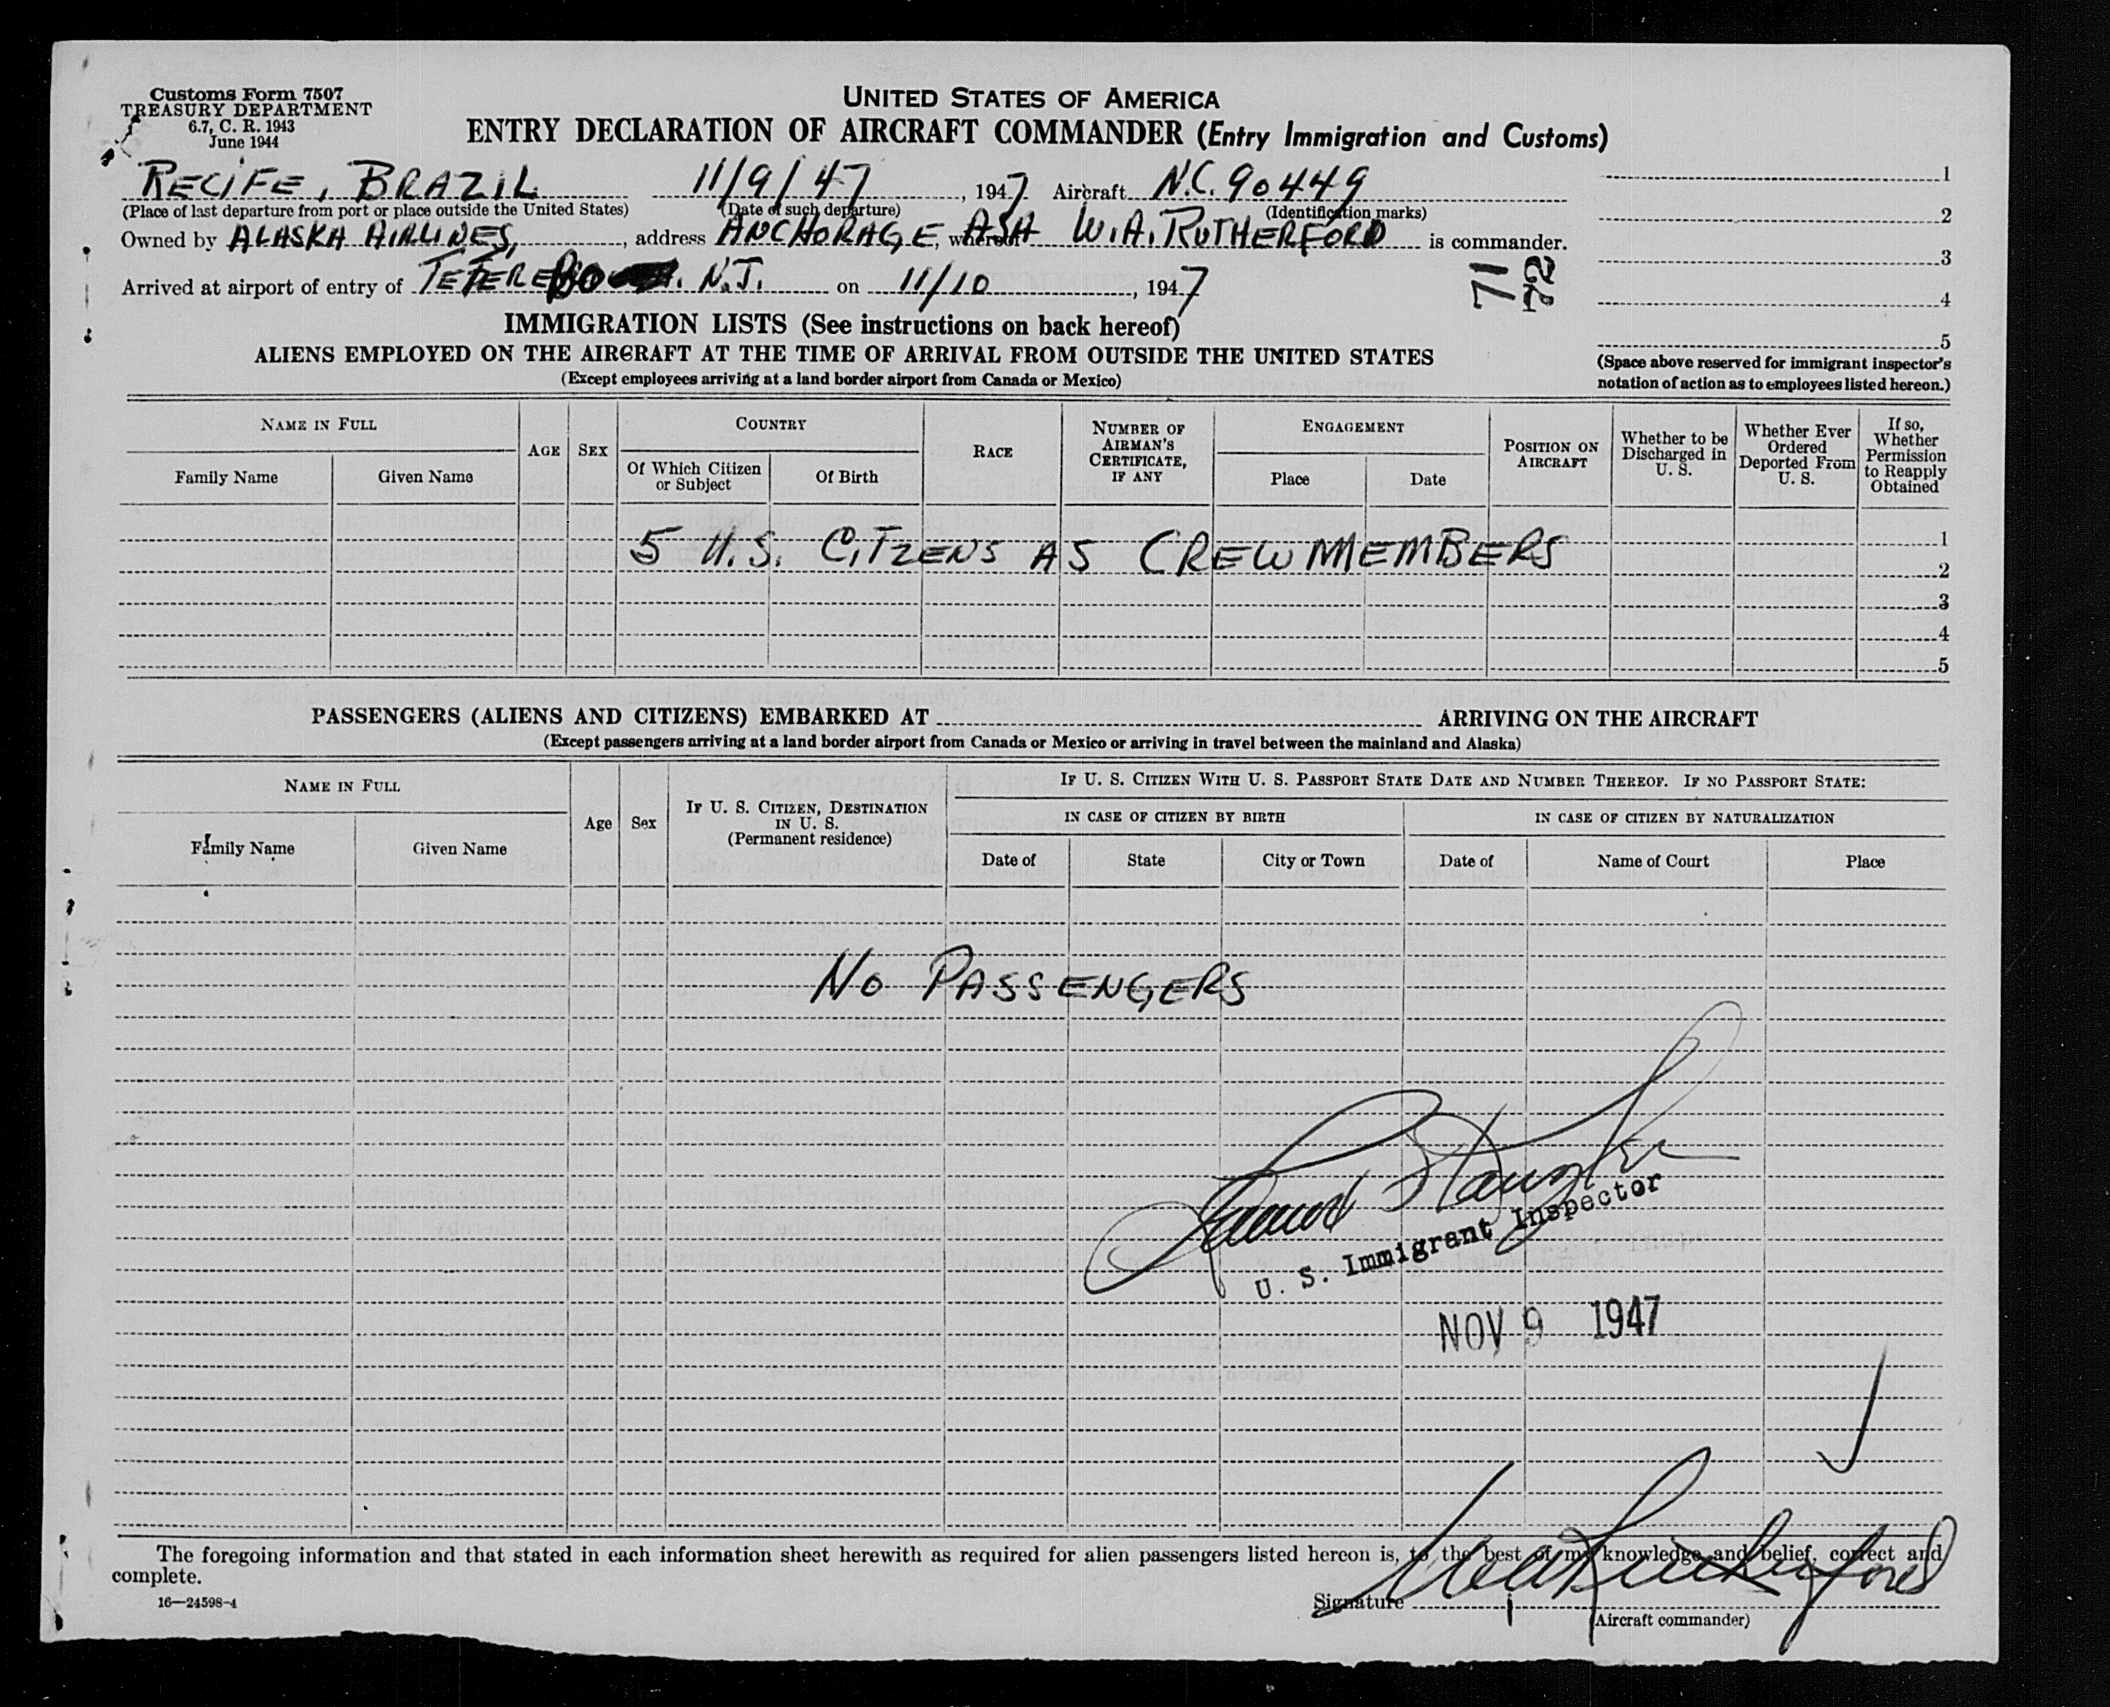 Customs Form 7507
TREASURY DEPARTMENT
6.7, C. R. 1943
June 1944
UNITED STATES OF AMERICA
ENTRY DECLARATION OF AIRCRAFT COMMANDER (Entry Immigration and Customs)
RECIFE, BRAZIL 11/9/47, 1947 Aircraft N.C. 90449
(Place of last departure from port or place outside the United States) (Date of such departure) (Identification marks)
Owned by ALASKA AIRLINES, , address ANCHORAGE, whereof W.A. RUTHERFORD is commander.
Arrived at airport of entry of N.J. on 11/10, 1947
71
72
1
2
3
4
5
(Space above reserved for immigrant inspector's
notation of action as to employees listed hereon.)
IMMIGRATION LISTS (See instructions on back hereof)
ALIENS EMPLOYED ON THE AIRCRAFT AT THE TIME OF ARRIVAL FROM OUTSIDE THE UNITED STATES
(Except employees arriving at a land border airport from Canada or Mexico)
NAME IN FULL
Family Name Given Name
AGE SEX
COUNTRY
Of Which Citizen or Subject Of Birth
RACE
NUMBER OF AIRMAN'S CERTIFICATE, IF ANY
ENGAGEMENT
Place Date
POSITION ON AIRCRAFT
Whether to be Discharged in U. S.
Whether Ever Ordered Deported From U. S.
If so, Whether Permission to Reapply Obtained
5 U.S. CITZENS AS CREWMEMBERS
1
2
3
4
5
PASSENGERS (ALIENS AND CITIZENS) EMBARKED AT ARRIVING ON THE AIRCRAFT
(Except passengers arriving at a land border airport from Canada or Mexico or arriving in travel between the mainland and Alaska)
NAME IN FULL
Family Name Given Name
Age Sex
IF U. S. CITIZEN, DESTINATION IN U. S.
(Permanent residence)
IF U. S. CITIZEN WITH U. S. PASSPORT STATE DATE AND NUMBER THEREOF. IF NO PASSPORT STATE:
IN CASE OF CITIZEN BY BIRTH IN CASE OF CITIZEN BY NATURALIZATION
Date of State City or Town Date of Name of Court Place
NO PASSENGERS
U. S. Immigrant Inspector
NOV 9 1947
The foregoing information and that stated in each information sheet herewith as required for alien passengers listed hereon is, to the best of my knowledge and belief, correct and
complete.
16—24598-4
Signature W A Rutherford
(Aircraft commander)